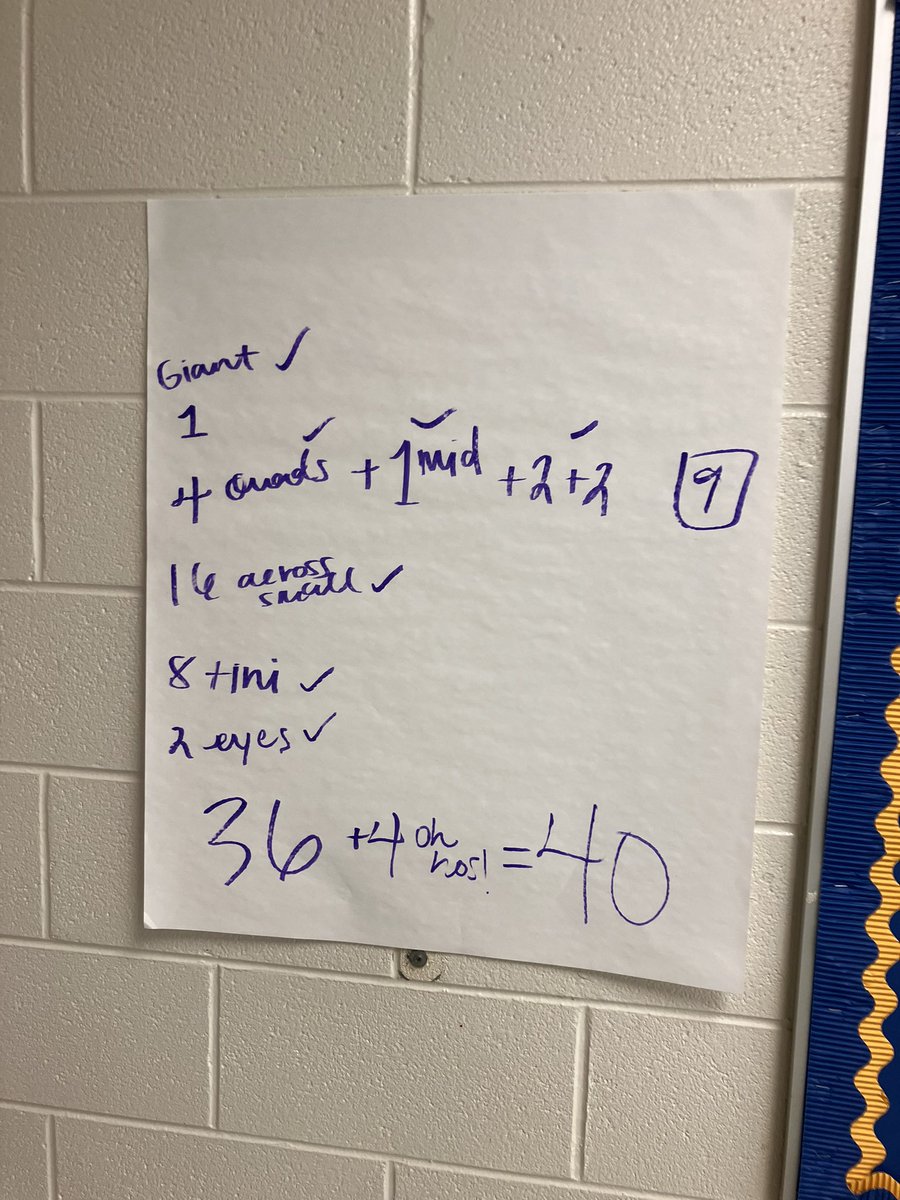 Giant ✓
1
4 quads ✓ + 1 mid ✓ + 2 + 2 ✓ 9
16 across small ✓
8 tini ✓
2 eyes ✓
36 + 4 oh nos! = 40